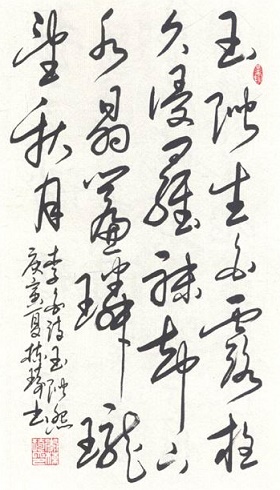 玉階生白露夜
久侵羅襪却下
水晶簾玲瓏
望秋月
李白诗玉階怨
庚寅夏书